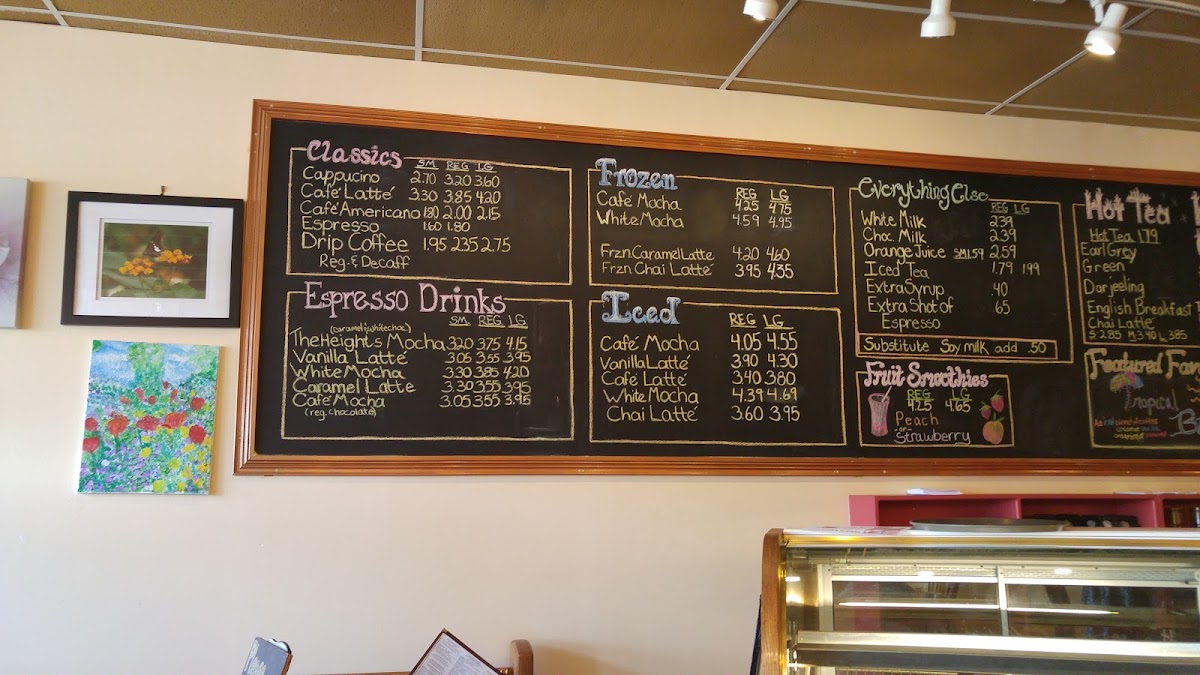 Classics SM REG LG
Cappucino 2.70 3.20 3.60
Café Latté 3.30 3.85 4.20
Café Americano 1.80 2.00 2.15
Espresso 1.60 1.80
Drip Coffee 1.95 2.35 2.75
Reg. & Decaff
Espresso Drinks
SM REG LG
(caramel & white choc)
The Heights Mocha 3.20 3.75 4.15
Vanilla Latté 3.05 3.55 3.95
White Mocha 3.30 3.85 4.20
Caramel Latte 3.30 3.55 3.95
Café Mocha 3.05 3.55 3.95
(reg. chocolate)
Frozen
REG LG
Café Mocha 4.25 4.75
White Mocha 4.59 4.95
Frzn Caramel Latte 4.20 4.60
Frzn Chai Latté 3.95 4.35
Iced
REG LG
Café Mocha 4.05 4.55
Vanilla Latté 3.90 4.30
Café Latté 3.40 3.80
White Mocha 4.39 4.69
Chai Latté 3.60 3.95
Everything Else
REG LG
White Milk 2.39
Choc. Milk 2.39
Orange Juice SM 1.59 2.59
Iced Tea 1.79 1.99
Extra Syrup .40
Extra Shot of .65
Espresso
Substitute Soy milk add .50
Fruit Smoothies
REG LG
4.25 4.65
Peach
-or-
Strawberry
Hot Tea
Hot Tea 1.79
Earl Grey
Green
Darjeeling
English Breakfast
Chai Latté
S 2.85 M 3.40 L 3.85
Featured
Tropical